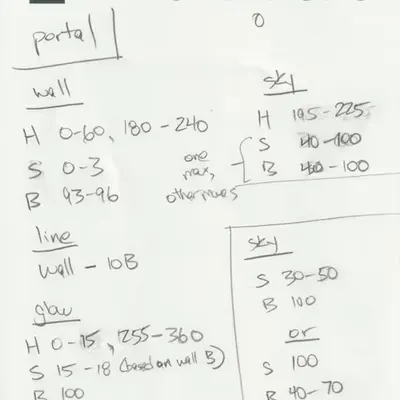 portal
0
wall
H 0-60, 180-240
S 0-3
B 93-96
line
wall - 10B
glow
H 0-15, 255-360
S 15-18 (based on wall B)
B 100
sky
H 195-225
S 40-100
B 40-100
one max, other moves
sky
S 30-50
B 100
or
S 100
B 40-70